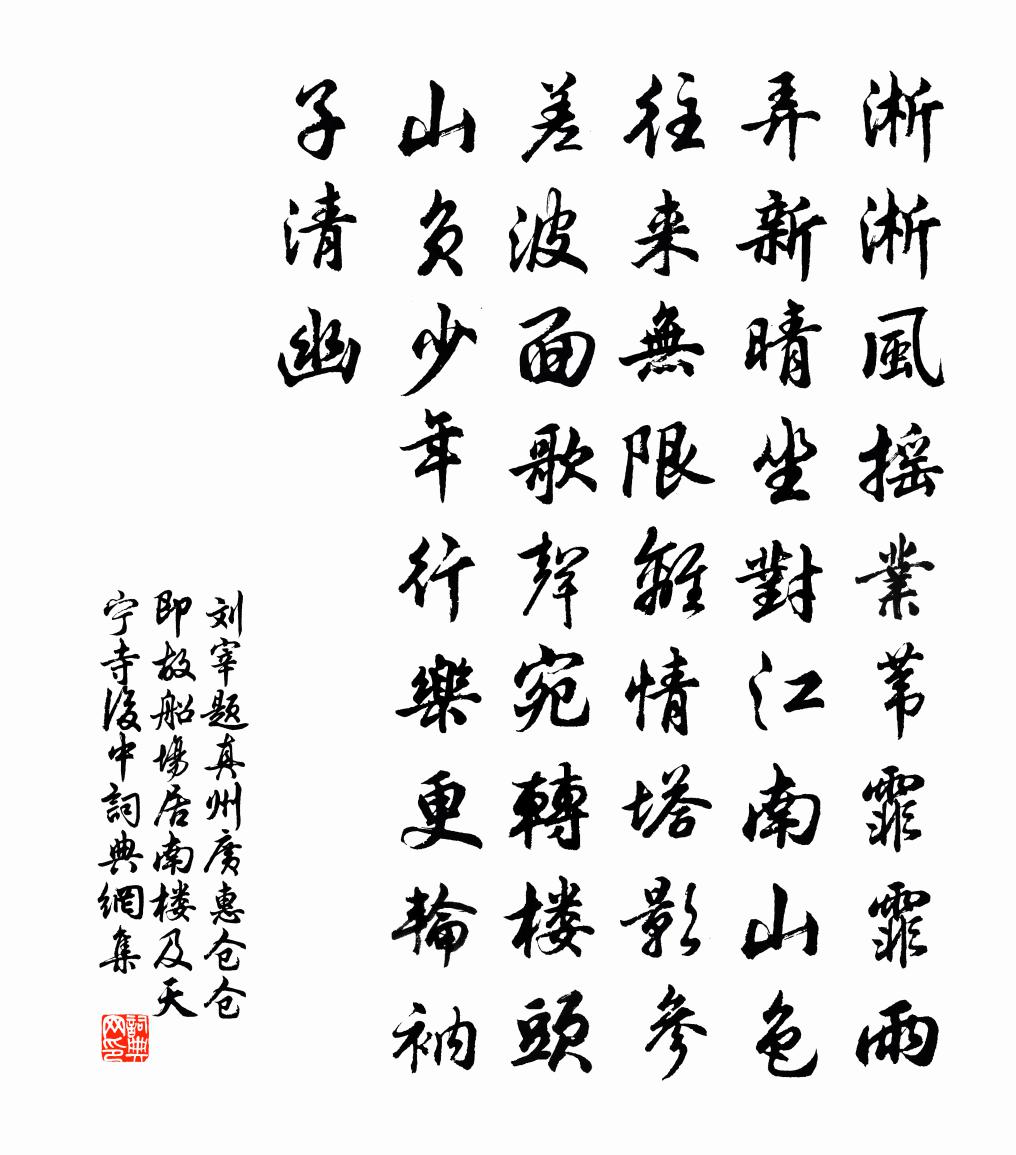 淅淅風摇業苇霏霏雨
弄新晴坐對江南山色
往来無限離情塔影參
差波面歌聲宛轉楼頭
山負少年行樂更輪衲
子清幽
刘宰题真州廣惠仓仓
即故船場居南楼及天
宁寺後中詞典網集
詞典网印